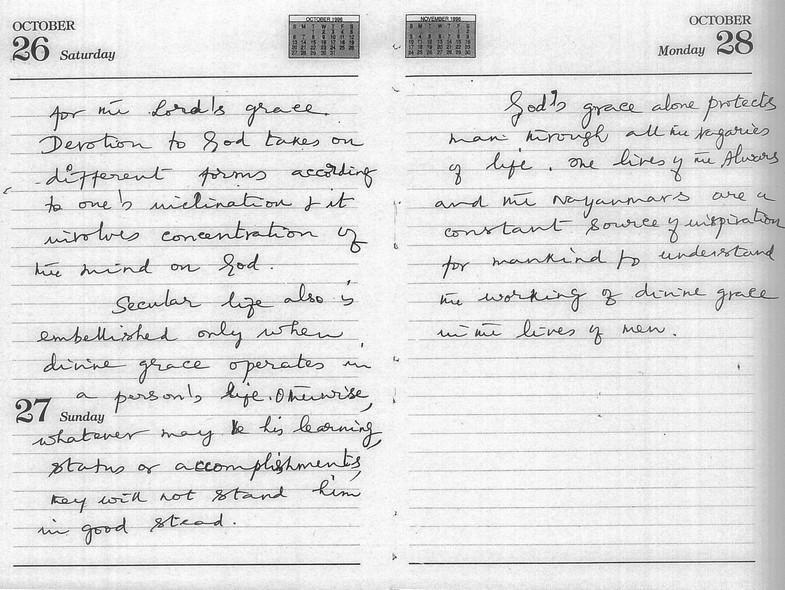 OCTOBER
26 Saturday
OCTOBER 1996
for the Lord's grace.
Devotion to God takes on
different forms according
to one's inclination & it
involves concentration of
the mind on God.
Secular life also is
embellished only when
divine grace operates in
a person's life. Otherwise,
27 Sunday
whatever may be his learning,
status or accomplishments,
they will not stand him
in good stead.
NOVEMBER 1996
OCTOBER
Monday 28
God's grace alone protects
man through all the vagaries
of life. The lives of the Alwars
and the Nayanmars are a
constant source of inspiration
for mankind to understand
the working of divine grace
in the lives of men.